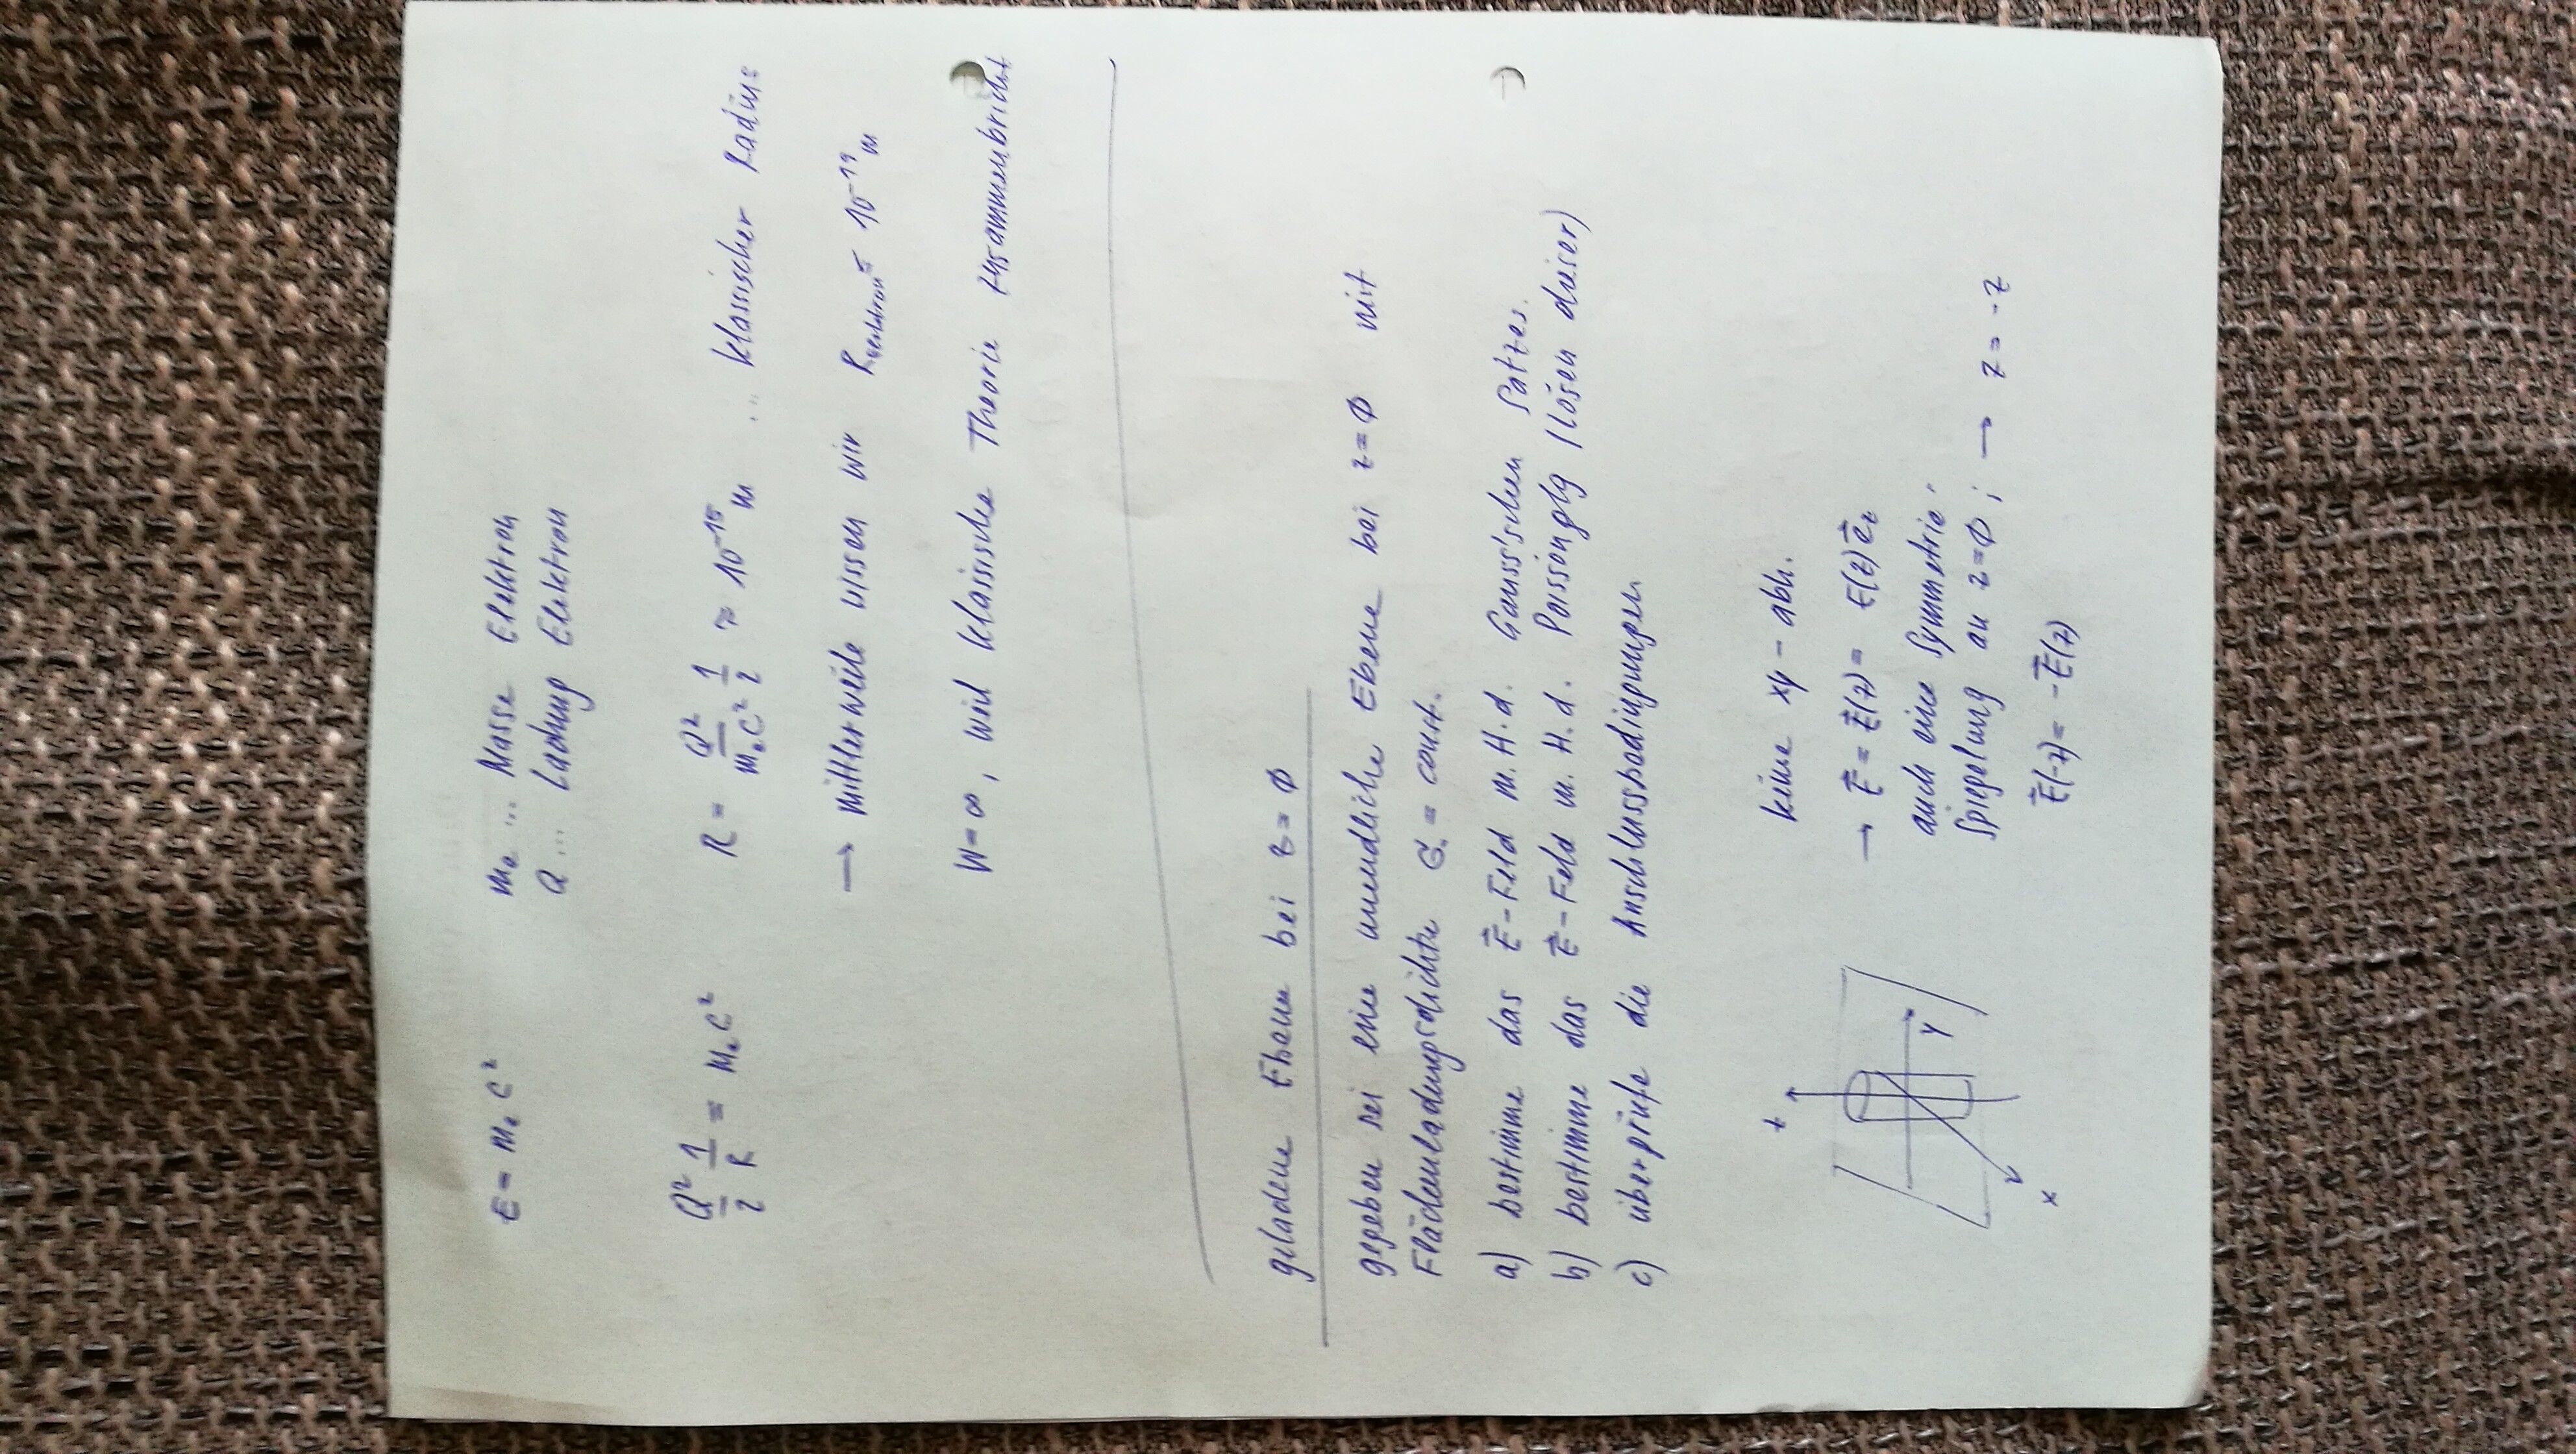 E = mₑ c²   mₑ ... Masse Elektron
Q ... Ladung Elektron
Q²/2 1/R = mₑ c²   R = Q²/(mₑ c²) 1/2 ≈ 10⁻¹⁵ m ... klassischer Radius
→ mittlerweile wissen wir R_elektron ≤ 10⁻¹⁹ m
W = ∞, weil klassische Theorie zusammenbricht
geladene Ebene bei z = ∅
gegeben sei eine unendliche Ebene bei z = ∅ mit
Flächenladungsdichte σ₀ = const.
a) bestimme das E⃗-Feld m. H. d. Gauss'schen Satzes.
b) bestimme das E⃗-Feld m. H. d. Poissonglg (lösen dieser)
c) überprüfe die Anschlussbedingungen
z
y
x
keine xy - abh.
→ E⃗ = E⃗(z) = E(z) e⃗_z
auch eine Symmetrie:
Spiegelung an z = ∅ ; → z = -z
E⃗(-z) = -E⃗(z)